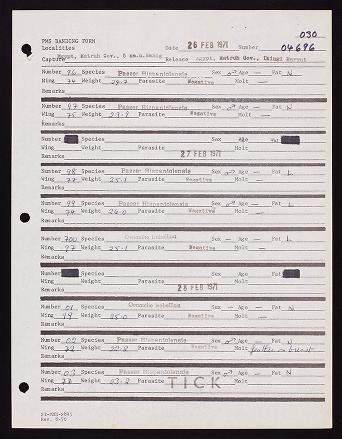 030
PMS BANDING FORM
Localities Date 26 FEB 1971 Number 04696
Capture Egypt, Matruh Gov., Release Egypt, Matruh Gov., Ikingi Maryut
Number 96 Species Passer Hispaniolensis Sex ♂ Age — Fat N
Wing 74 Weight Parasite Negative Molt —
Remarks
Number 97 Species Passer Hispaniolensis Sex ♂ Age — Fat N
Wing 75 Weight Parasite Negative Molt —
Remarks
Number Species Sex Age Fat
Wing Weight Parasite Molt
Remarks 27 FEB 1971
Number 98 Species Passer Hispaniolensis Sex ♂ Age — Fat L
Wing 77 Weight 25.1 Parasite Negative Molt —
Remarks
Number 99 Species Passer Hispaniolensis Sex ♂ Age — Fat L
Wing 74 Weight 26.0 Parasite Negative Molt —
Remarks
Number 700 Species Oenanthe isabellina Sex — Age — Fat L
Wing 97 Weight 25.1 Parasite Negative Molt —
Remarks
Number Species Sex Age Fat
Wing Weight Parasite Molt
Remarks 28 FEB 1971
Number 01 Species Oenanthe isabellina Sex — Age — Fat N
Wing 99 Weight 25.0 Parasite Negative Molt —
Remarks
Number 02 Species Passer Hispaniolensis Sex ♂ Age — Fat N
Wing Weight Parasite Negative Molt
Remarks
Number 03 Species Passer Hispaniolensis Sex ♂ Age — Fat N
Wing Weight Parasite TICK Molt
Remarks
Rev. 8-70